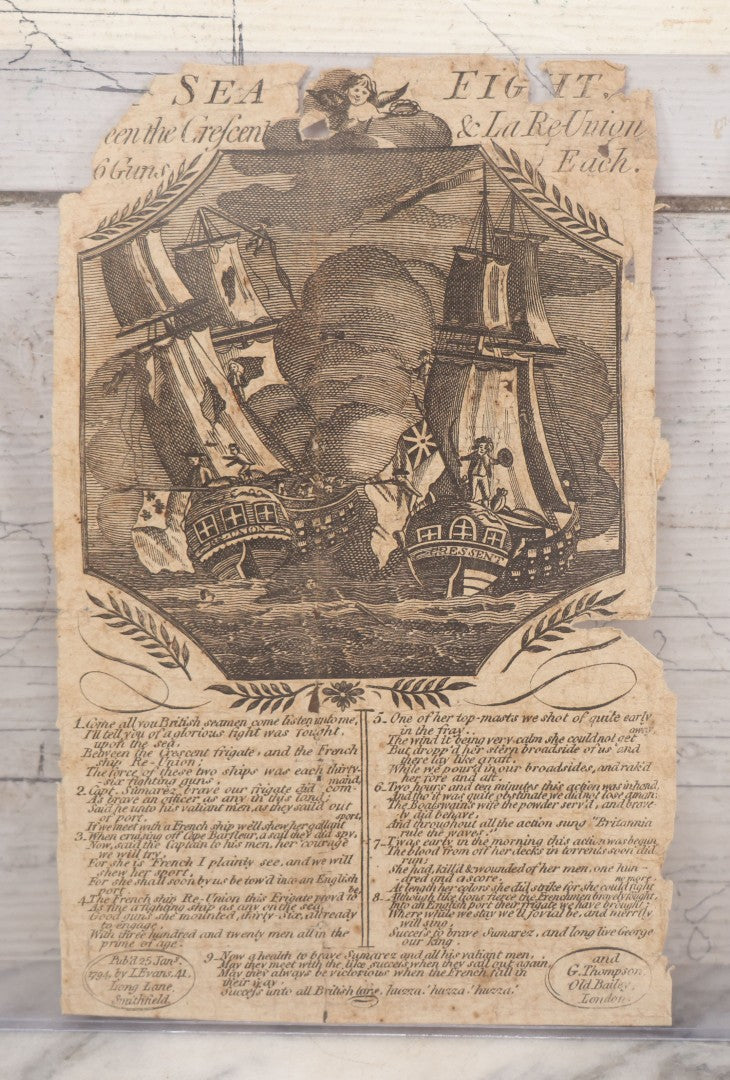 SEA FIGHT,
een the Crescent & La Re-Union
6 Guns Each.
ON
CRESSENT
1_Come all you British seamen come listen unto me,
I'll tell you of a glorious fight was fought,
upon the sea,
Between the Crescent frigate, and the French
ship Re-Union;
The force of these two ships was each thirty-
six fighting guns
2_Capt. Sumarez, brave our frigate did com-
mand,
As brave an officer as any in this land,
Said he unto his valiant men, as they saild out
of port,
If we meet with a French ship we'll shew her gallant
sport,
3_When cruising off Cape Barfleur, a sail they did spy,
Now, said the Captain to his men, her courage
we will try;
For she is French I plainly see, and we will
shew her sport,
For she shall soon by us be tow'd into an English
port.
4_The French ship Re-Union this Frigate prov'd to
be,
As fine a fighting ship as any on the sea,
Good guns she mounted, thirty-six, all ready
to engage,
With three hundred and twenty men all in the
prime of age.
5_One of her top-masts we shot of quite early
in the fray..
The wind it being very calm she could not get
away.
But dropp'd her stern broadside of us and
there lay like
While we pour'd in our broadsides, and rak'd
her fore and aft.
6_Two hours and ten minutes this action was in hand,
And tho' it was quite obstinate we did not lose a man:
The Boatswain's wife the powder serv'd, and brave-
ly did behave;
And throughout all the action sung "Britannia
rule the waves."
7_T was early in the morning this action was begun,
The blood from off her decks in torrents soon did
run;
She had kill'd & wounded of her men, one hun-
dred and a score,
At length her colors she did strike for she could fight
no more.
8_Although like lions fierce the Frenchmen bravely fought,
Into an English port their Frigate we have brought;
Where while we stay we'll jovial be, and merrily
will sing,
Success to brave Sumarez, and long live George
our king.
9_Now a health to brave Sumarez and all his valiant men,
May they meet with the like success when they sail out again,
May they always be victorious when the French fall in
their way.
Success unto all British tars, huzza! huzza! huzza!
Pub'd 25 Jany.
1794, by I. Evans, 41,
Long Lane,
Smithfield,
and
G. Thompson,
Old Bailey,
London.